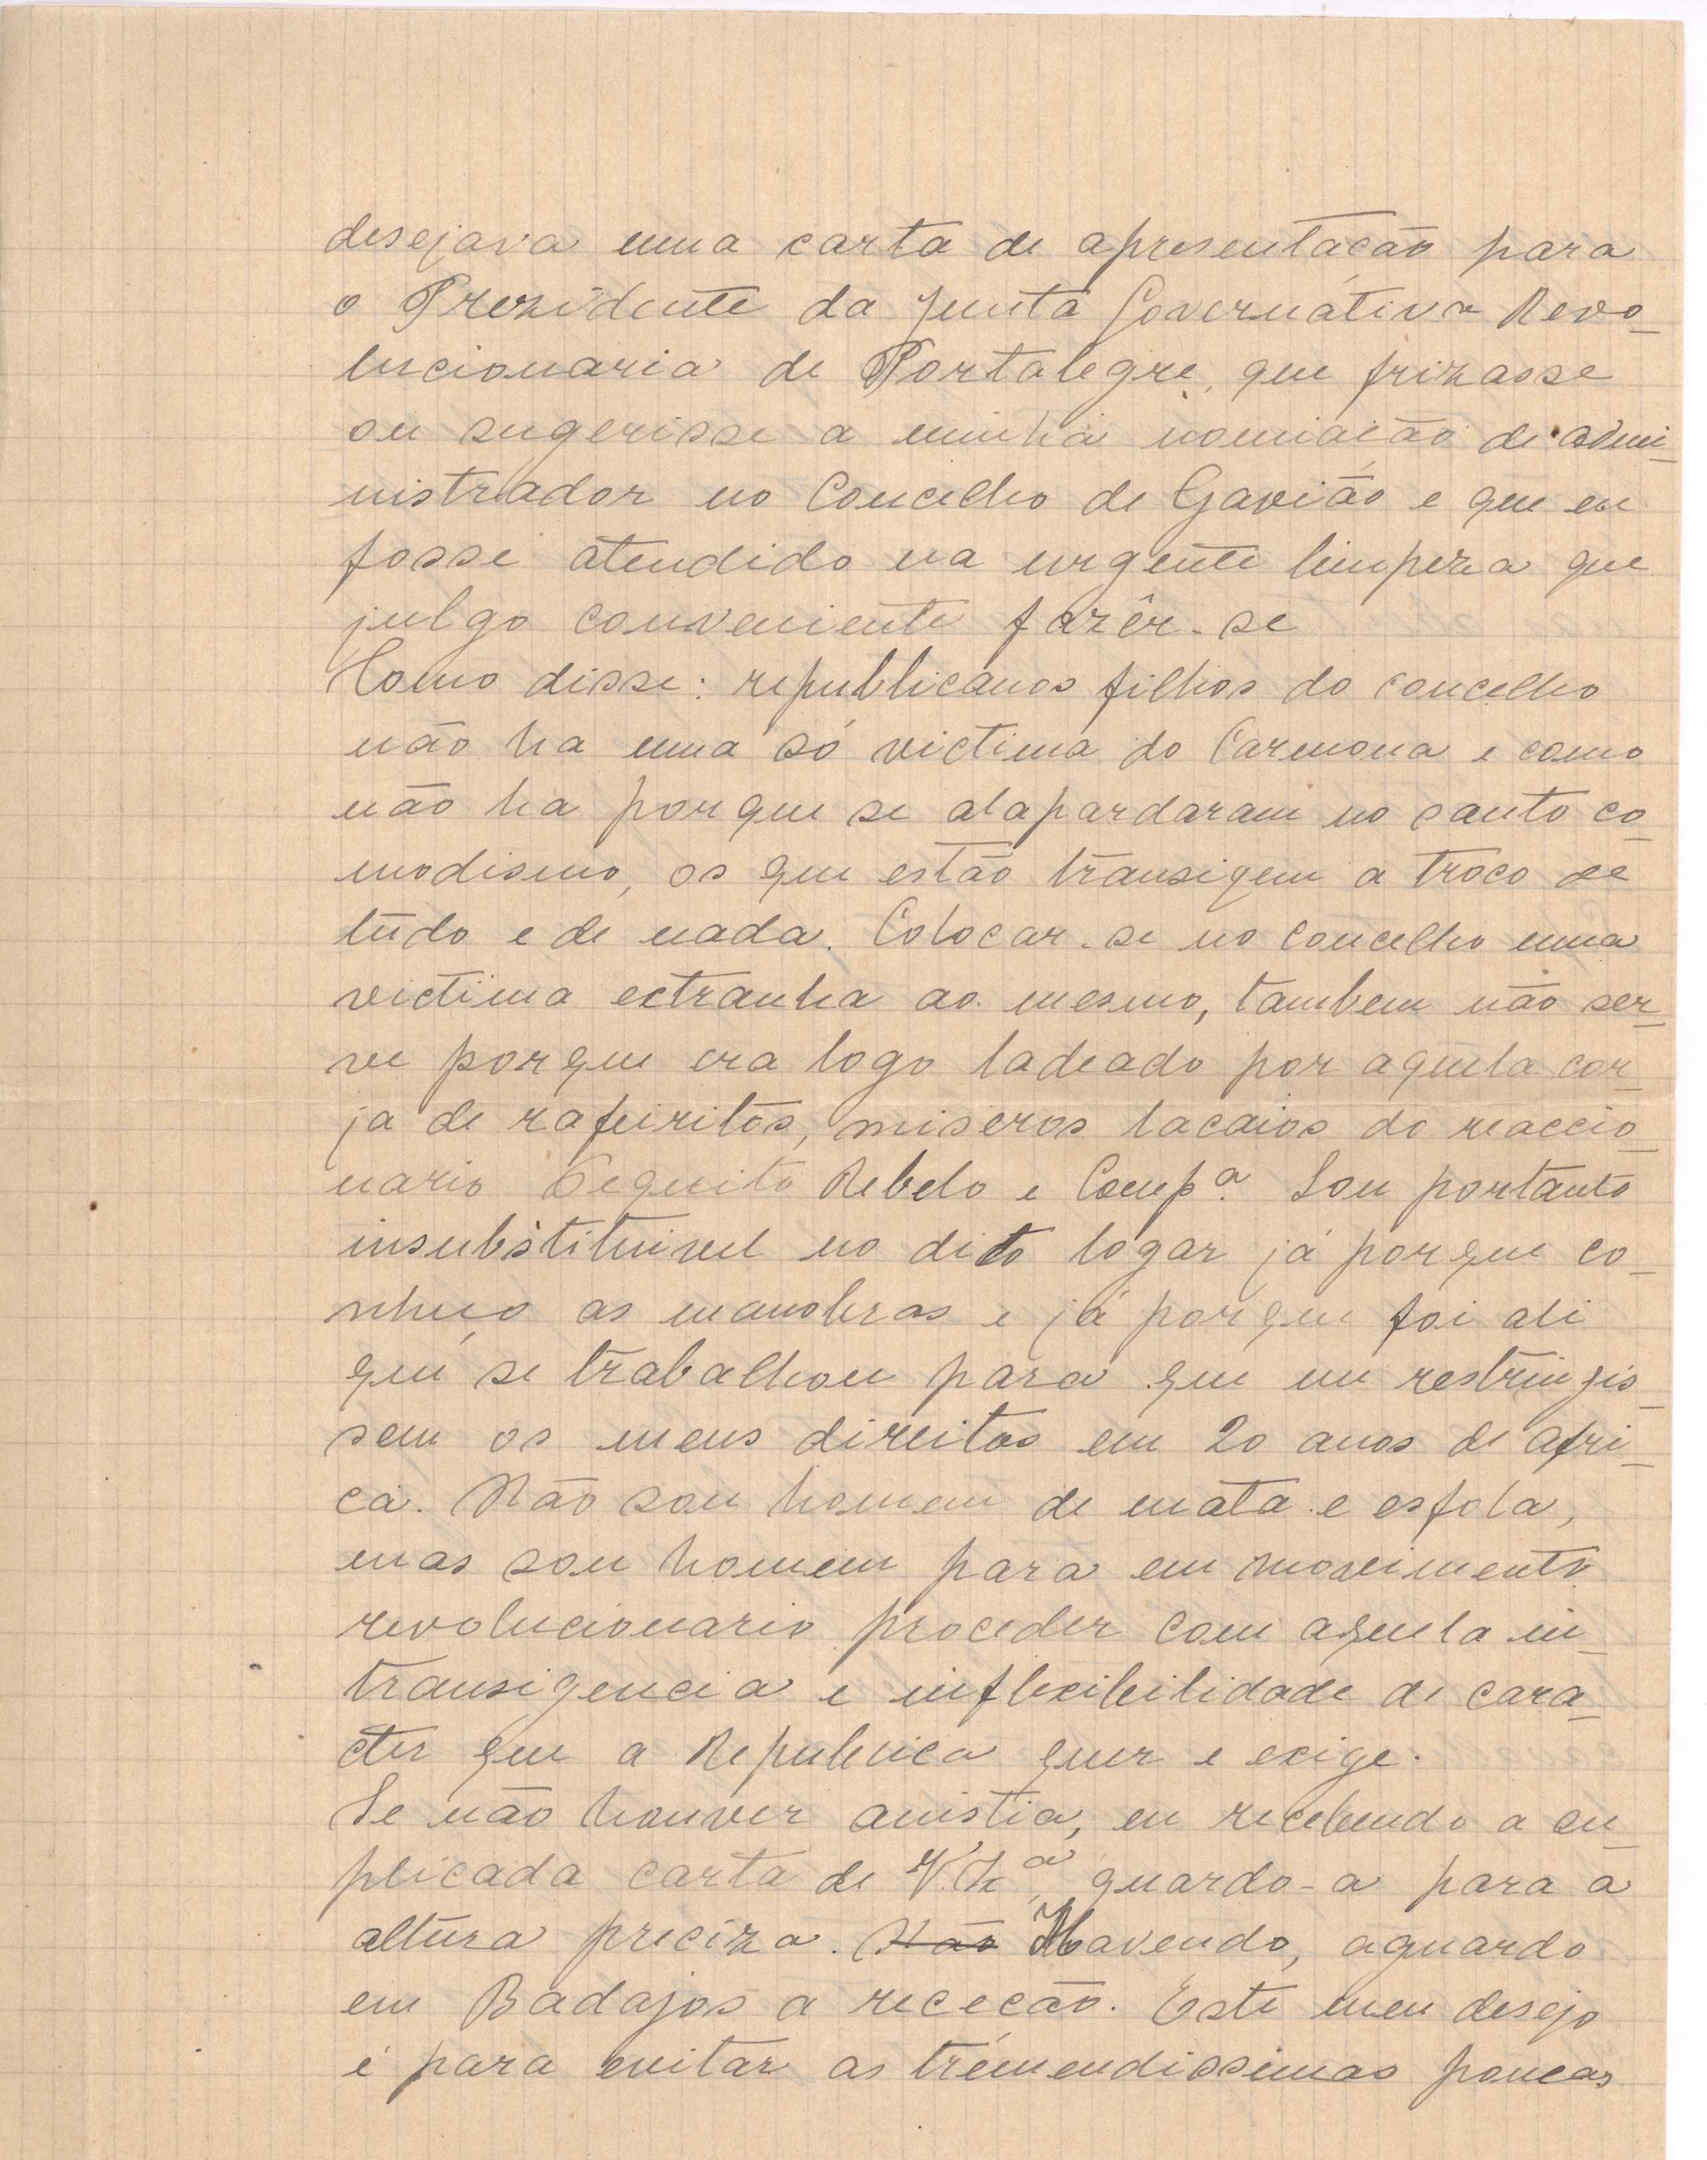 desejava uma carta de apresentação para
o Prezidente da Junta Governátiva Revo-
lucionaria de Portalegre, que frizasse
ou sugerisse a minha nomiação de admi-
nistrador no Concelho de Gavião e que eu
fosse atendido na urgente limpeza que
julgo conveniente fazêr-se
Como disse: republicanos filhos do concelho
não ha uma só victima do Carmona e como
não ha porque se alapardaram no santo co-
modismo, os que estão transigem a troco de
tudo e de nada. Colocar-se no concelho uma
victima extranha ao mesmo, tambem não ser-
ve porque era logo ladeado por aquela cor-
ja de rafeiritos, miseros lacaios do reaccio-
nario Pequito Rebelo e Comp.ª Sou portanto
insubstituivel no dito logar já porque co-
nheço as manobras e já porque foi ali
que se trabalhou para que me restringis-
sem os meus direitos em 20 anos de Afri-
ca. Não sou homem de mata e esfola,
mas sou homem para em movimento
revolucionario proceder com aquela in-
transigência e inflexibilidade de cara-
cter que a Republica quer e exige.
Se não houver anistia, eu recebendo a su-
plicada carta de V. Ex.ª guardo-a para a
altura preciza. Não Havendo, aguardo
em Badajos a receção. Este meu desejo
é para evitar as tremendissimas poucas